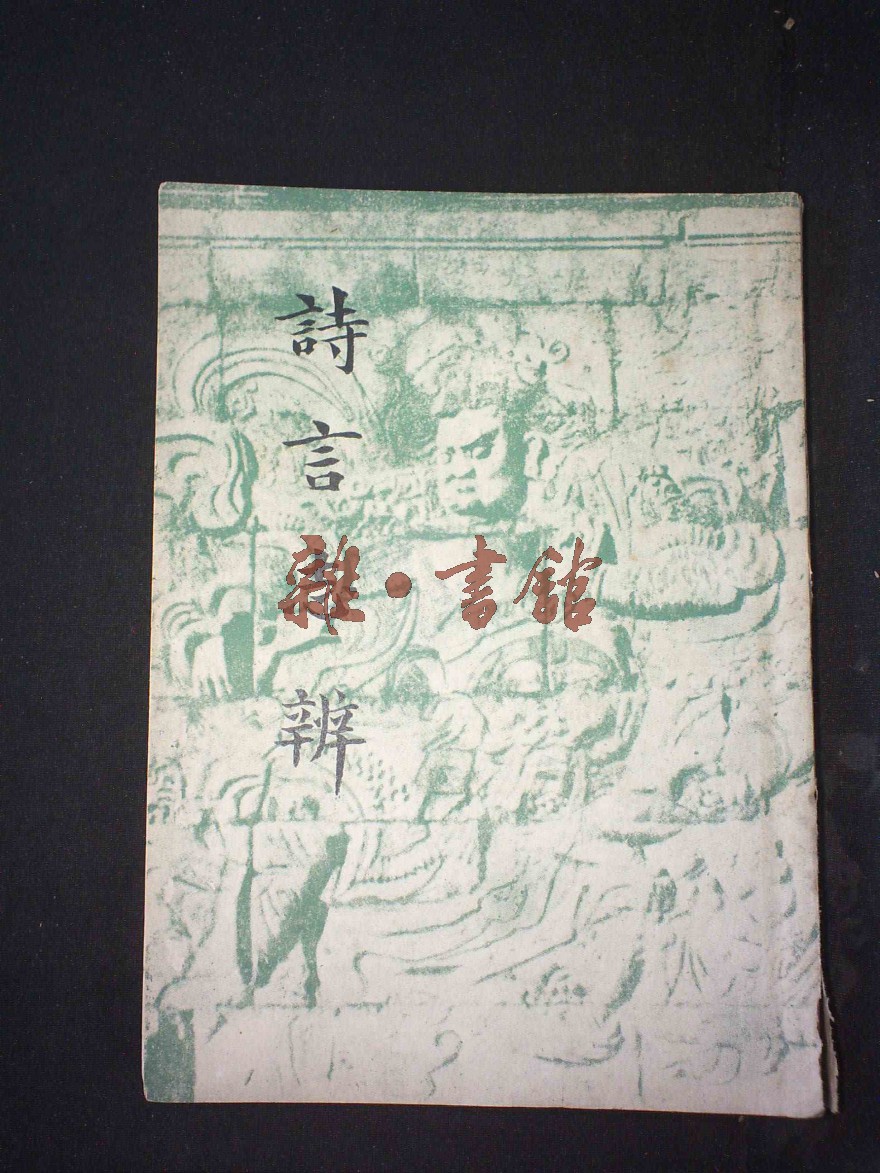 詩言志辨
雜·書館